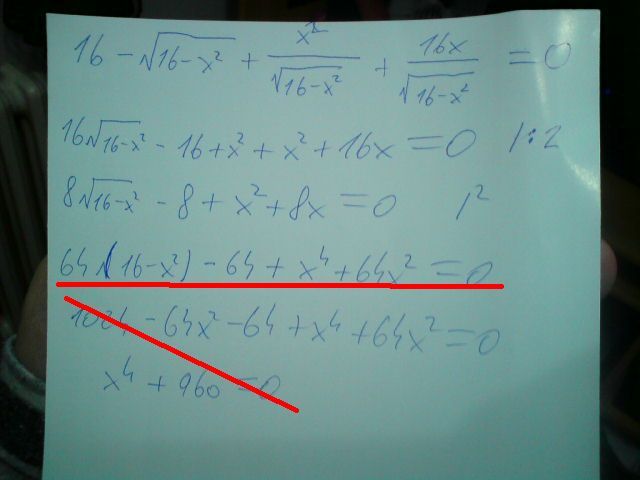 16 - √(16-x²) + x²/√(16-x²) + 16x/√(16-x²) = 0
16√(16-x²) - 16 + x² + x² + 16x = 0 /:2
8√(16-x²) - 8 + x² + 8x = 0 /²
64(16-x²) - 64 + x⁴ + 64x² = 0
1024 - 64x² - 64 + x⁴ + 64x² = 0
x⁴ + 960 = 0